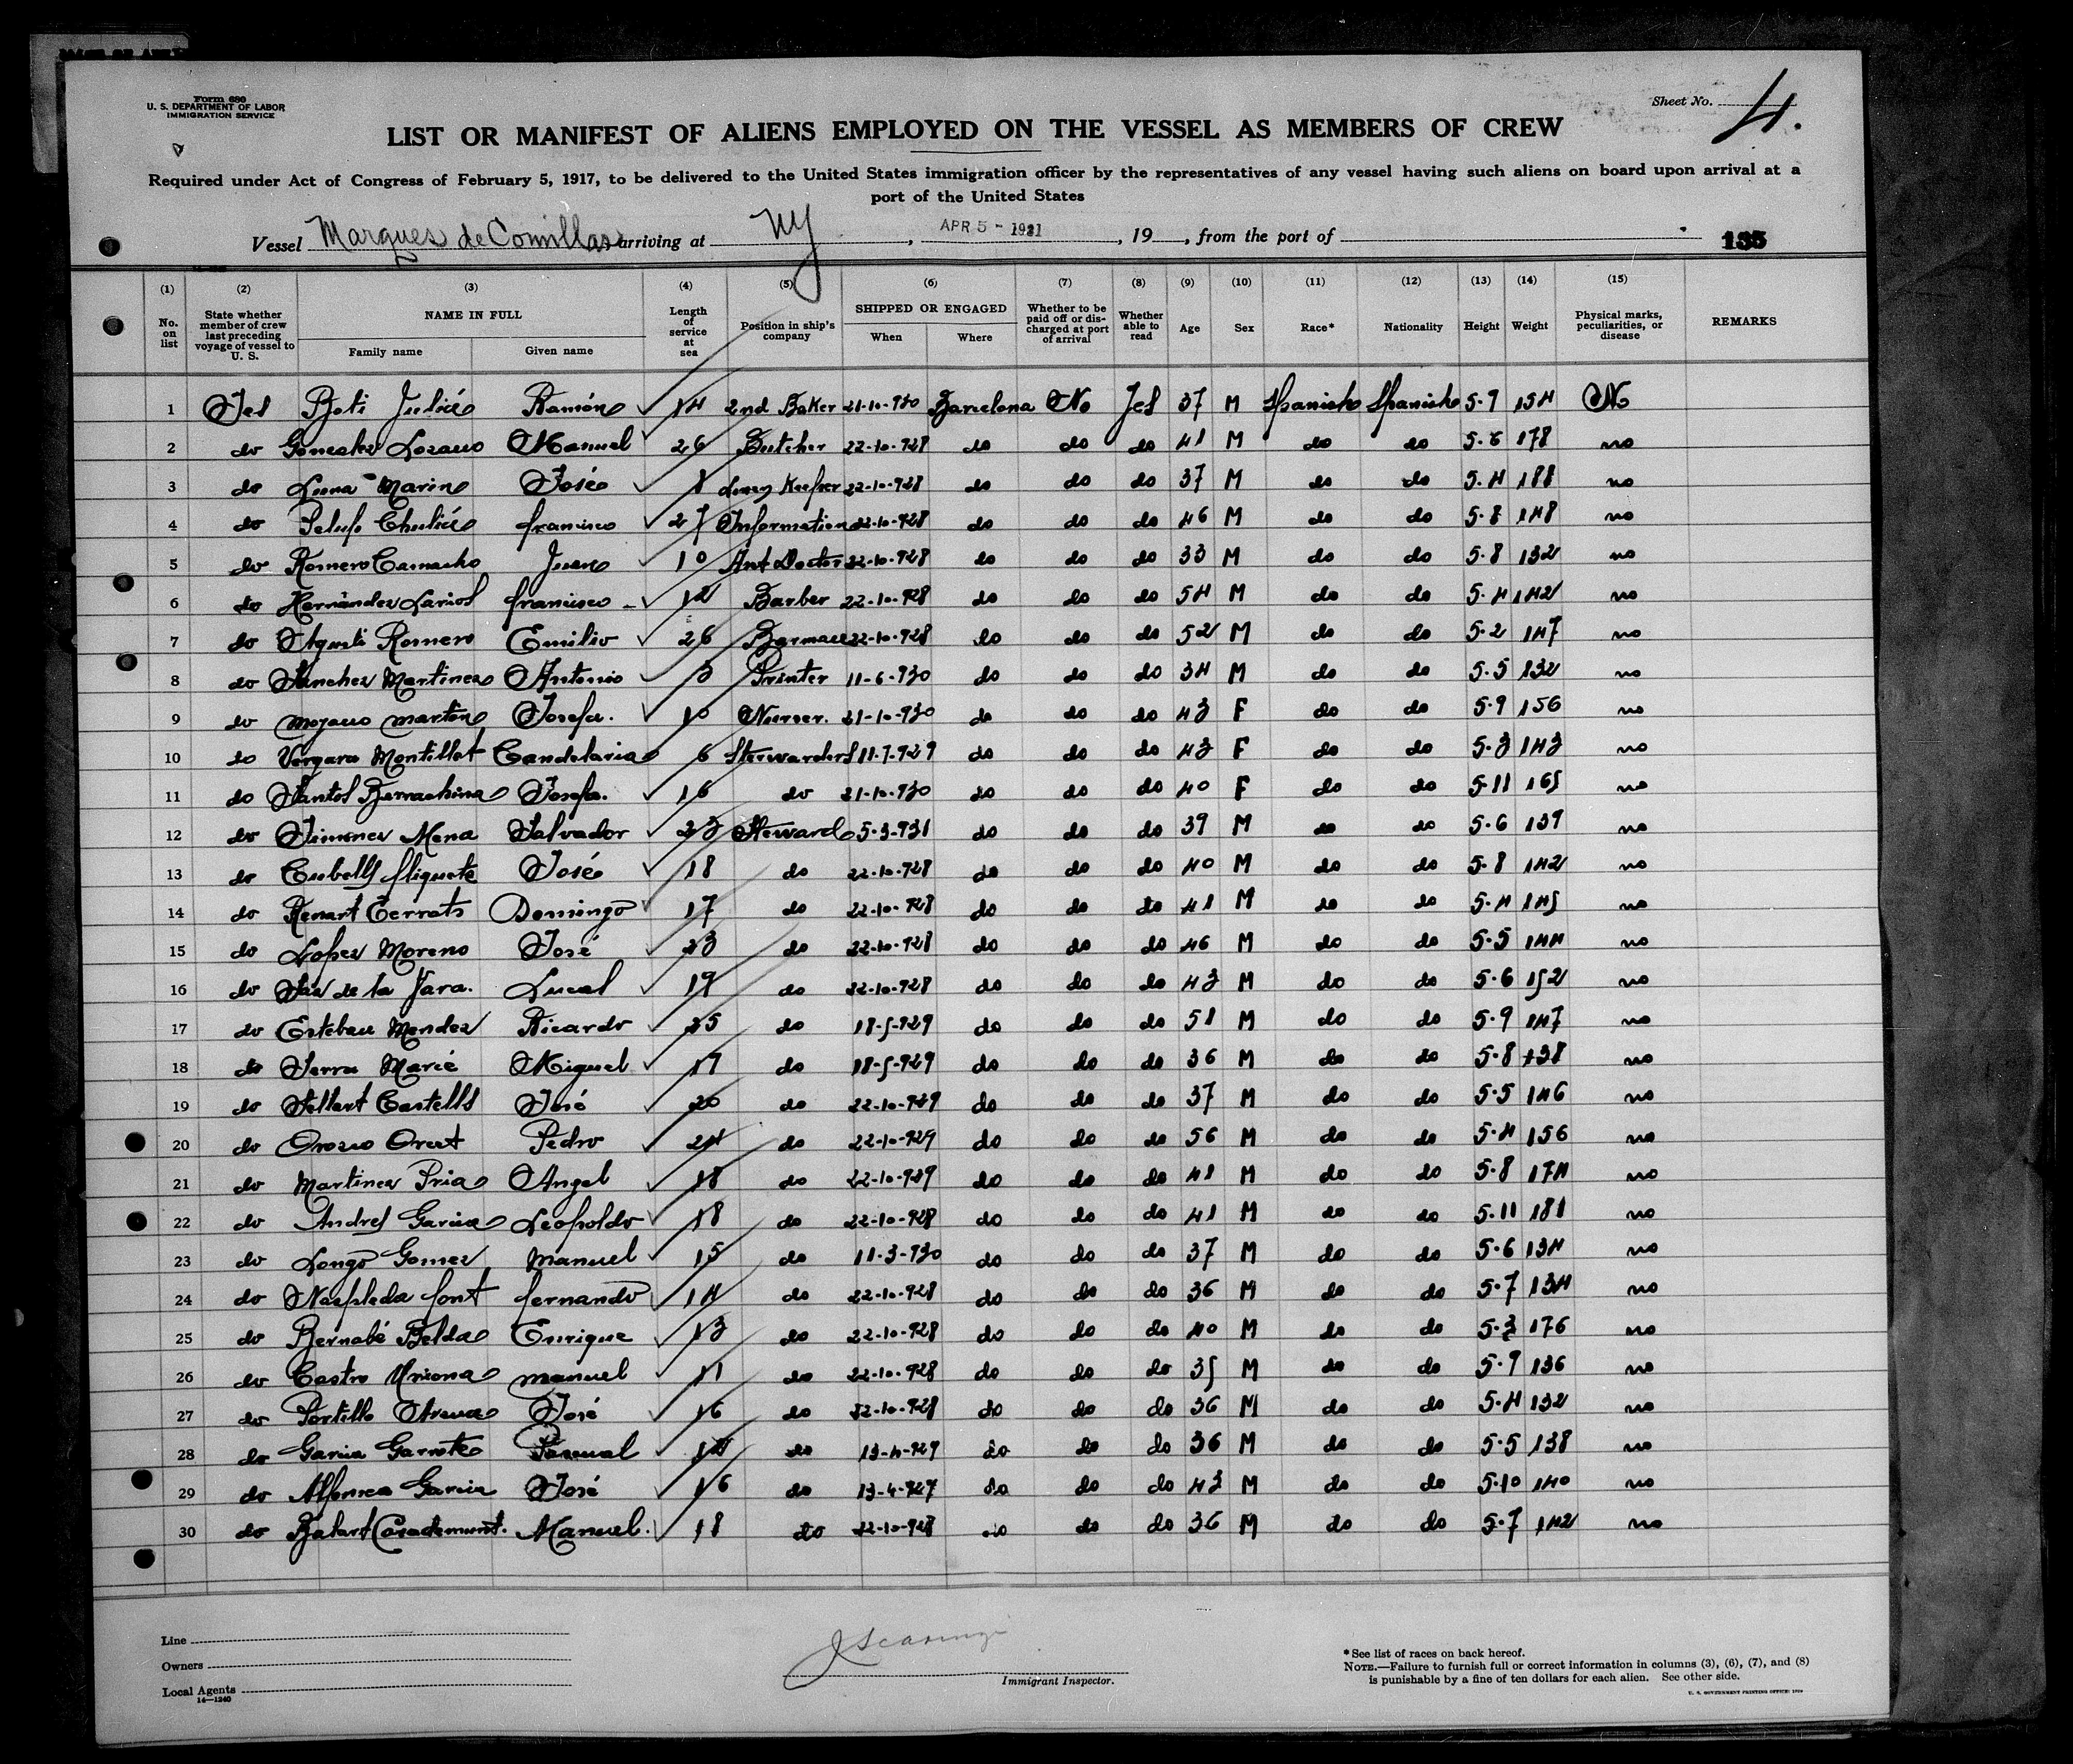 Form 680
U. S. DEPARTMENT OF LABOR
IMMIGRATION SERVICE
Sheet No. 4.
LIST OR MANIFEST OF ALIENS EMPLOYED ON THE VESSEL AS MEMBERS OF CREW
Required under Act of Congress of February 5, 1917, to be delivered to the United States immigration officer by the representatives of any vessel having such aliens on board upon arrival at a
port of the United States
Vessel Marques de Comillas arriving at NY , APR 5 - 1931 , 19 , from the port of 135
(1) (2) (3) (4) (5) (6) (7) (8) (9) (10) (11) (12) (13) (14) (15)
No. on list State whether member of crew last preceding voyage of vessel to U. S. NAME IN FULL Family name Given name Length of service at sea Position in ship's company SHIPPED OR ENGAGED When Where Whether to be paid off or discharged at port of arrival Whether able to read Age Sex Race* Nationality Height Weight Physical marks, peculiarities, or disease REMARKS
1 Yes Boti Juliá Ramón 14 2nd Baker 21-10-930 Barcelona No Yes 37 M Spanish Spanish 5·9 154 No
2 do Gonzalez Lozano Manuel 26 Butcher 22-10-928 do do do 41 M do do 5·6 178 no
3 do Luna Marin José 22-10-928 do do do 37 M do do 5·4 188 no
4 do Francisco 27 Information 22-10-928 do do do 46 M do do 5·8 148 no
5 do Romero Camacho Juan 10 Doctor 22-10-928 do do do 33 M do do 5·8 132 no
6 do Hernández Larios Francisco 12 Barber 22-10-928 do do do 54 M do do 5·4 142 no
7 do Agusti Romero Emilio 26 22-10-928 do do do 52 M do do 5·2 147 no
8 do Sanchez Martinez Antonio Printer 11-6-930 do do do 34 M do do 5·5 132 no
9 do Moyano Marton Josefa. 10 Nurser. 21-10-930 do do do 43 F do do 5·9 156 no
10 do Vergara Montillet Candelaria 6 11-7-929 do do do 43 F do do 5·3 143 no
11 do Santos Barrachina Josefa. 16 do 21-10-930 do do do 40 F do do 5·11 165 no
12 do Jimenez Mena Salvador 23 Steward 5-3-931 do do do 39 M do do 5·6 139 no
13 do Cubells José 18 do 22-10-928 do do do 40 M do do 5·8 142 no
14 do Renart Cerrats Domingo 17 do 22-10-928 do do do 41 M do do 5·4 145 no
15 do Lopez Moreno José 23 do 22-10-928 do do do 46 M do do 5·5 144 no
16 do de la Jara. Lucas 19 do 22-10-928 do do do 43 M do do 5·6 152 no
17 do Esteban Mendez Ricardo 35 do 18-5-929 do do do 51 M do do 5·9 147 no
18 do Serra Marié Miguel 19 do 18-5-929 do do do 36 M do do 5·8 138 no
19 do Castells José 20 do 22-10-929 do do do 37 M do do 5·5 146 no
20 do Orozco Orcet Pedro 24 do 22-10-929 do do do 56 M do do 5·4 156 no
21 do Martinez Pria Angel 18 do 22-10-929 do do do 41 M do do 5·8 174 no
22 do Andres Garcia Leopoldo 18 do 22-10-928 do do do 41 M do do 5·11 181 no
23 do Longo Gomez Manuel 15 do 11-3-930 do do do 37 M do do 5·6 134 no
24 do Naspleda Font Fernando 14 do 22-10-928 do do do 36 M do do 5·7 134 no
25 do Bernabé Belda Enrique 13 do 22-10-928 do do do 40 M do do 5·3 176 no
26 do Castro Manuel 11 do 22-10-928 do do do 35 M do do 5·9 136 no
27 do Portillo José 16 do 22-10-928 do do do 36 M do do 5·4 132 no
28 do Garcia Garrote Pascual 14 do 13-4-929 do do do 36 M do do 5·5 138 no
29 do Alfonsea Garcia José 16 do 13-4-927 do do do 43 M do do 5·10 140 no
30 do Balart Casademunt. Manuel. 18 do 22-10-928 do do do 36 M do do 5·7 142 no
Line
Owners
Local Agents
14—1240
Immigrant Inspector.
*See list of races on back hereof.
NOTE.—Failure to furnish full or correct information in columns (3), (6), (7), and (8)
is punishable by a fine of ten dollars for each alien. See other side.